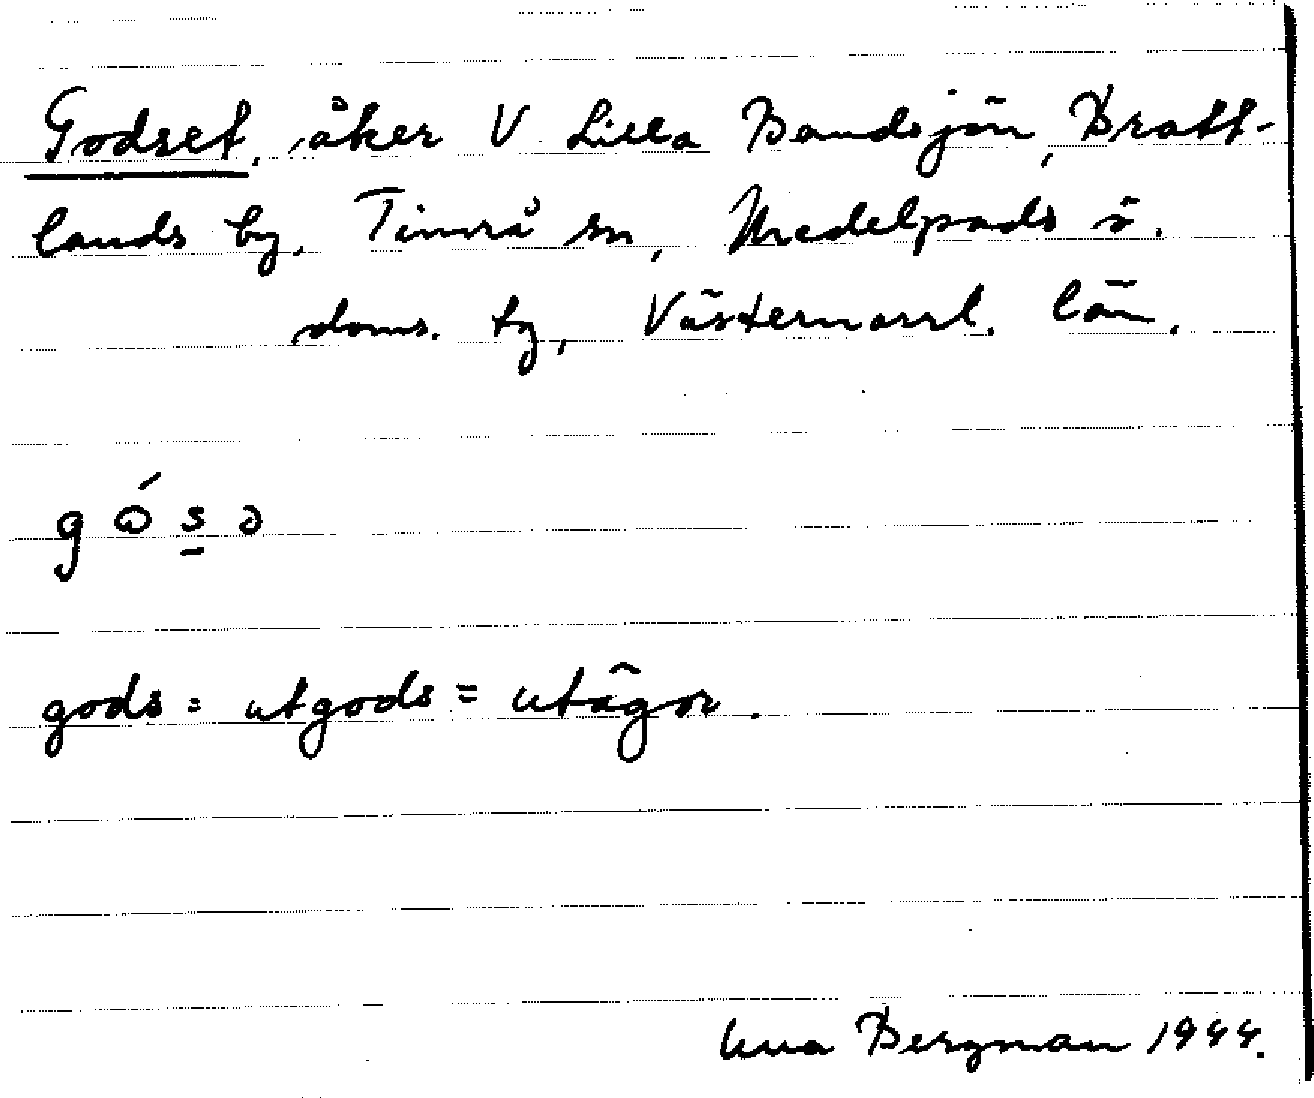 Godset, åker V Lilla Bandsjön, Bratt-
lands by, Timrå sn, Medelpads ö.
doms. tg, Västernorrl. län.
gọ́s̱ə
gods = utgods = utägor.
Bergman 1944.